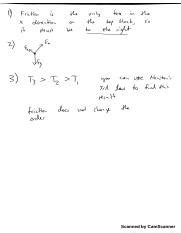 1) Friction is the only force in the
x direction on the top block, so
it must be to the right
2)
3) T3 > T2 > T1 you can use Newton's
3rd law to find this
result
friction does not change the
order
Scanned by CamScanner